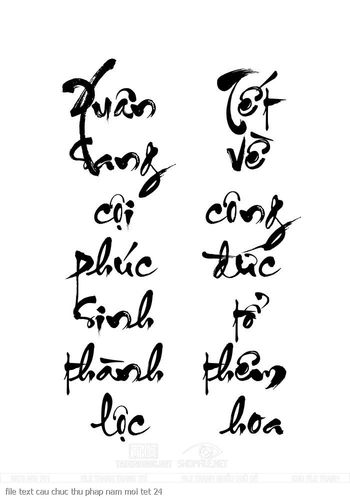 Xuân
sang
cội
phúc
sinh
thành
lộc
Tết
về
công
đức
tổ
thêm
hoa
SHOPFILE.NET
file text cau chuc thu phap nam moi tet 24